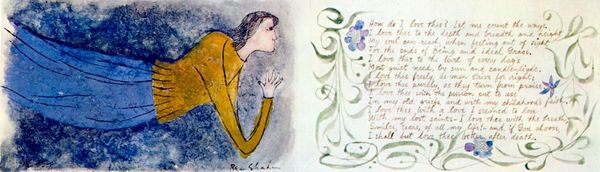 Ben Shahn
How do I love thee? Let me count the ways.
I love thee to the depth and breadth and height
My soul can reach, when feeling out of sight
For the ends of Being and ideal Grace.
I love thee to the level of every day's
Most quiet need, by sun and candlelight.
I love thee freely, as men strive for right;
I love thee purely, as they turn from praise.
I love thee with the passion put to use
In my old griefs, and with my childhood's faith.
I love thee with a love I seemed to lose
With my lost saints- I love thee with the breath,
Smiles, tears, of all my life!- and if God choose,
I shall but love thee better after death.